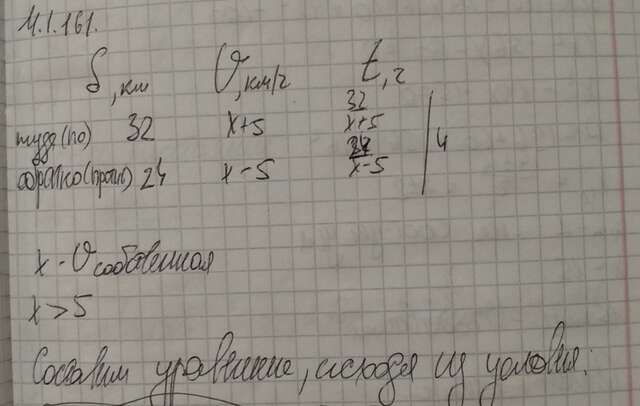 4.1.161.
S, км V, км/г t, г
туда (по) 32 x+5 32/x+5
обратно (против) 24 x-5 24/x-5 4
x - V собственная
x > 5
Составим уравнение, исходя из условия: